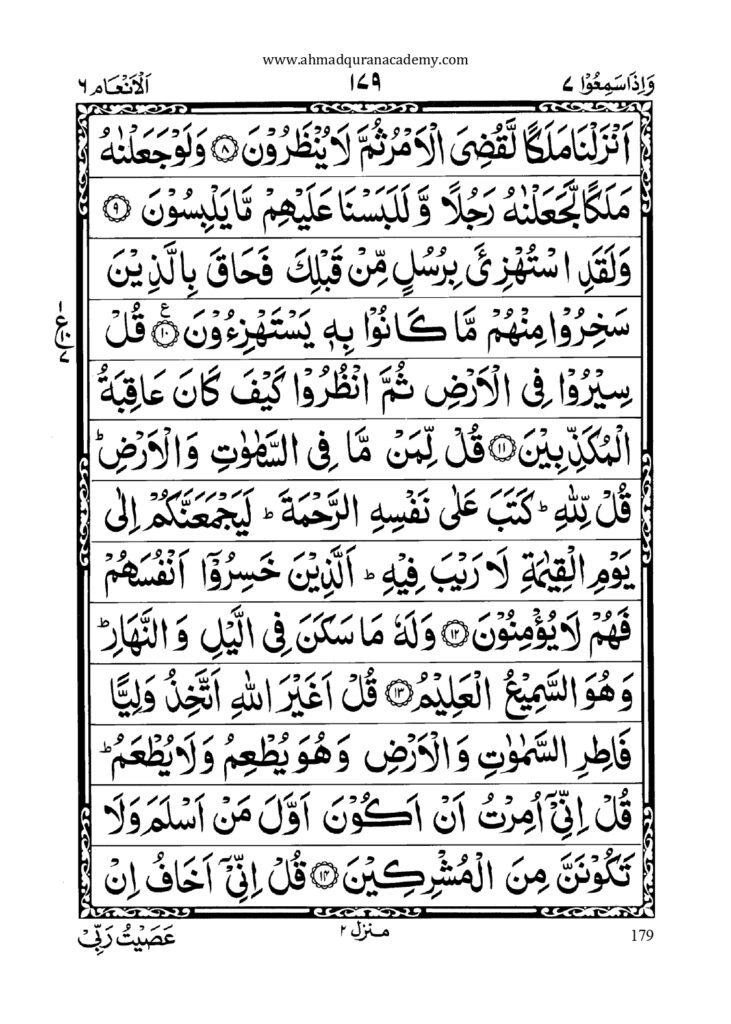 www.ahmadquranacademy.com
وَاِذَاسَمِعُوْا ٧ ١٧٩ اَلْاَنْعَام ٦
اَنْزَلْنَا مَلَكًا لَّقُضِیَ الْاَمْرُ ثُمَّ لَا یُنْظَرُوْنَ ۝٨ وَلَوْ جَعَلْنٰهُ
مَلَكًا لَّجَعَلْنٰهُ رَجُلًا وَّ لَلَبَسْنَا عَلَیْهِمْ مَّا یَلْبِسُوْنَ ۝٩
وَلَقَدِ اسْتُهْزِئَ بِرُسُلٍ مِّنْ قَبْلِكَ فَحَاقَ بِالَّذِیْنَ
سَخِرُوْا مِنْهُمْ مَّا كَانُوْا بِهٖ یَسْتَهْزِءُوْنَ ۝١٠ ع قُلْ
سِیْرُوْا فِی الْاَرْضِ ثُمَّ انْظُرُوْا كَیْفَ كَانَ عَاقِبَةُ
الْمُكَذِّبِیْنَ ۝١١ قُلْ لِّمَنْ مَّا فِی السَّمٰوٰتِ وَالْاَرْضِ ؕ
قُلْ لِّلّٰهِ ؕ كَتَبَ عَلٰی نَفْسِهِ الرَّحْمَةَ ؕ لَیَجْمَعَنَّكُمْ اِلٰی
یَوْمِ الْقِیٰمَةِ لَا رَیْبَ فِیْهِ ؕ اَلَّذِیْنَ خَسِرُوْۤا اَنْفُسَهُمْ
فَهُمْ لَا یُؤْمِنُوْنَ ۝١٢ وَلَهٗ مَا سَكَنَ فِی الَّیْلِ وَ النَّهَارِ ؕ
وَ هُوَ السَّمِیْعُ الْعَلِیْمُ ۝١٣ قُلْ اَغَیْرَ اللّٰهِ اَتَّخِذُ وَلِیًّا
فَاطِرِ السَّمٰوٰتِ وَ الْاَرْضِ وَ هُوَ یُطْعِمُ وَ لَا یُطْعَمُ ؕ
قُلْ اِنِّیْۤ اُمِرْتُ اَنْ اَكُوْنَ اَوَّلَ مَنْ اَسْلَمَ وَلَا
تَكُوْنَنَّ مِنَ الْمُشْرِكِیْنَ ۝١٤ قُلْ اِنِّیْۤ اَخَافُ اِنْ
179 منزل ٢ عَصَیْتُ رَبِّیْ